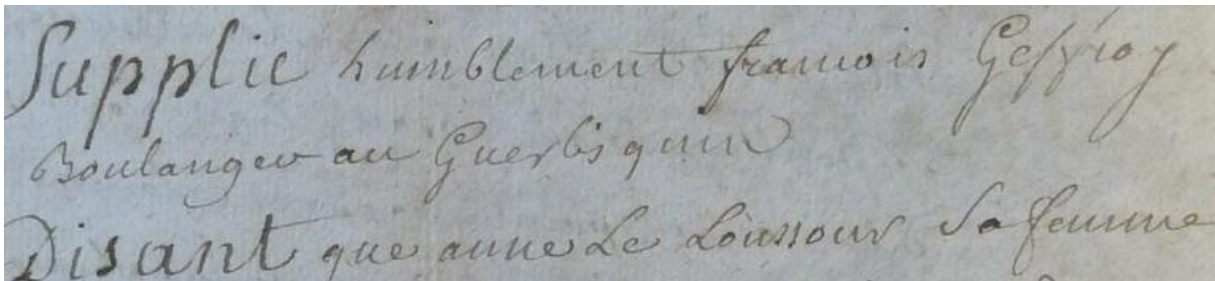 Supplie humblement francois Geffroy
Boulanger au Guerlisquin
Disant que anne Le Loussour Sa femme